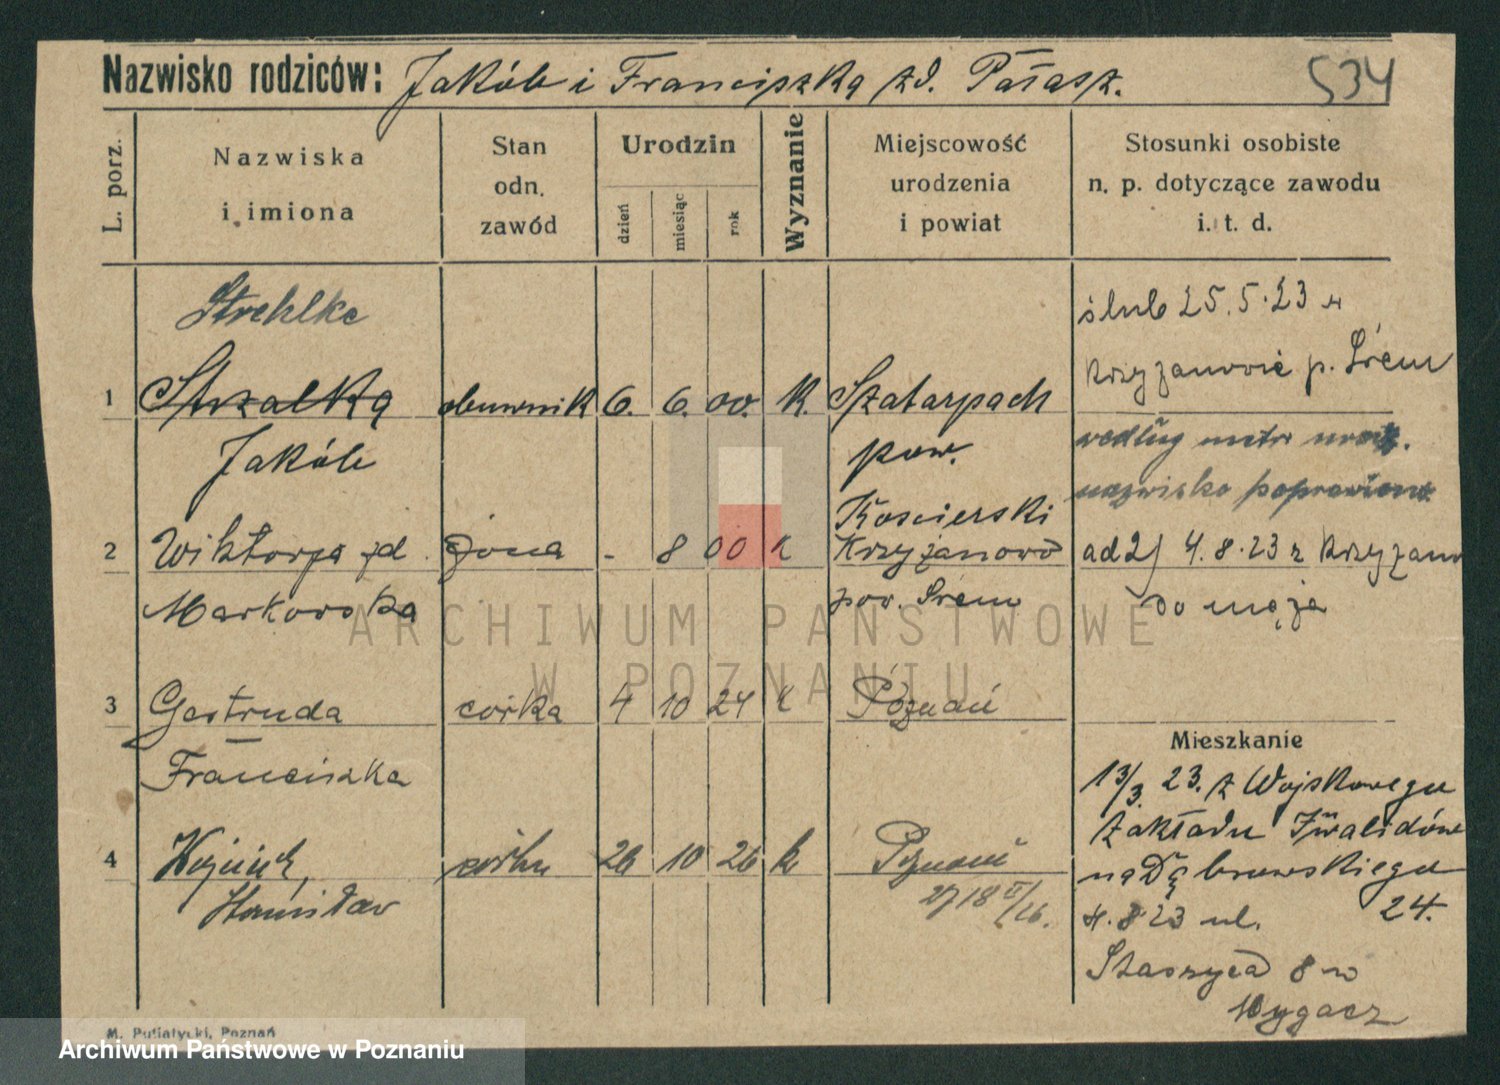 Nazwisko rodziców: Jakób i Franciszka zd. Pałasz. 534
L. porz.
Nazwiska
i imiona
Stan
odn.
zawód
Urodzin
dzień
miesiąc
rok
Wyznanie
Miejscowość
urodzenia
i powiat
Stosunki osobiste
n. p. dotyczące zawodu
i. t. d.
Strehlke
1 Strzałka obuwnik 6. 6. 00. K. Szatarpach
Jakób
pow.
Koscierski
ślub 25.5.23 w
Krzyżanowie p. Śrem
według metr
nazwisko poprawiono
2 Wiktorja zd. żona - 8 00 k Krzyżanowo ad 2) 4.8.23 z Krzyżanow
Markowska pow. Śrem do męża
3 Gertruda córka 4 10 24 k Poznań
Franciszka
4 26 10 26 k Poznań
Stanisław
Mieszkanie
13/3. 23. z Wojskowego
Zakładu Inwalidów
na Dąbrowskiego
24.
4.8.23 ul.
Staszyca 8
M. Putiatycki, Poznań
ARCHIWUM PAŃSTWOWE
W POZNANIU
Archiwum Państwowe w Poznaniu